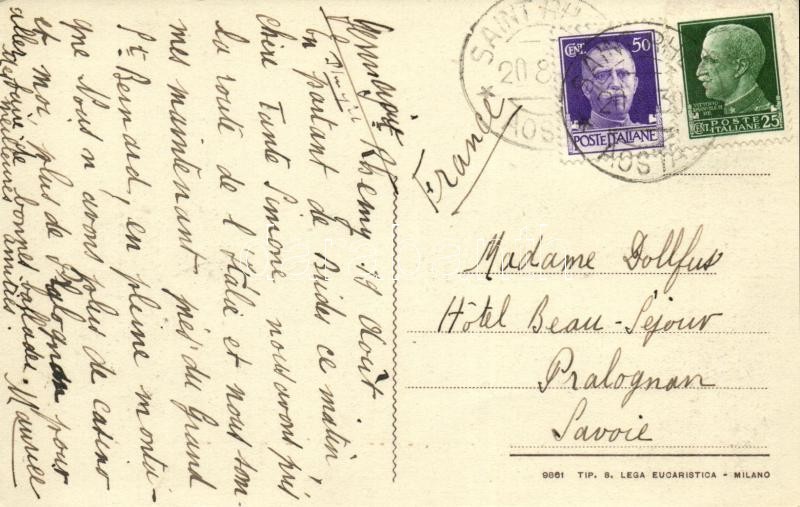 Rhemy 19 Août
en partant de Brides ce matin,
cher Tante Simone nous avons pris
la route de l'Italie et nous som-
mes maintenant près du Grand
St Bernard, en pleine monta-
gne Nous n'avons plus de casino
et moi plus de Pralognan pour
aller faire de bonnes ballades.
Meilleures amitiés.
Maurice
France
SAINT RH
20.8
AOSTA
CENT. 50
POSTE ITALIANE
CENT. POSTE ITALIANE 25
Madame Dollfus
Hôtel Beau-Séjour
Pralognan
Savoie
9861 TIP. S. LEGA EUCARISTICA - MILANO